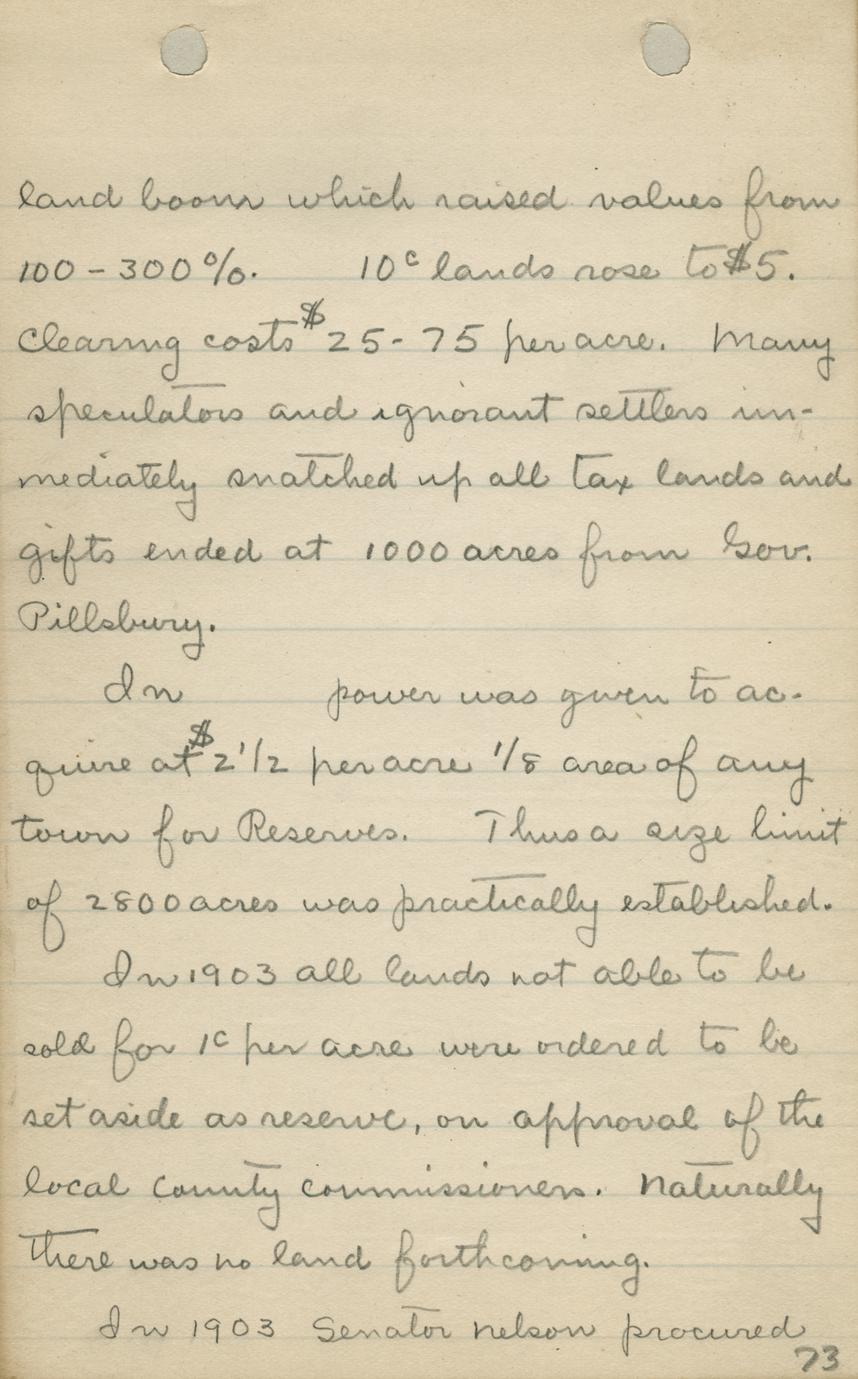 land boom which raised values from
100-300%. 10c lands rose to $5.
Clearing costs $25-75 per acre. Many
speculators and ignorant settlers im-
mediately snatched up all tax lands and
gifts ended at 1000 acres from Gov.
Pillsbury.
In power was given to ac-
quire at $2 1/2 per acre 1/8 area of any
town for Reserves. Thus a size limit
of 2800 acres was practically established.
In 1903 all lands not able to be
sold for 1c per acre were ordered to be
set aside as reserve, on approval of the
local County commissioners. Naturally
there was no land forthcoming.
In 1903 Senator Nelson procured
73